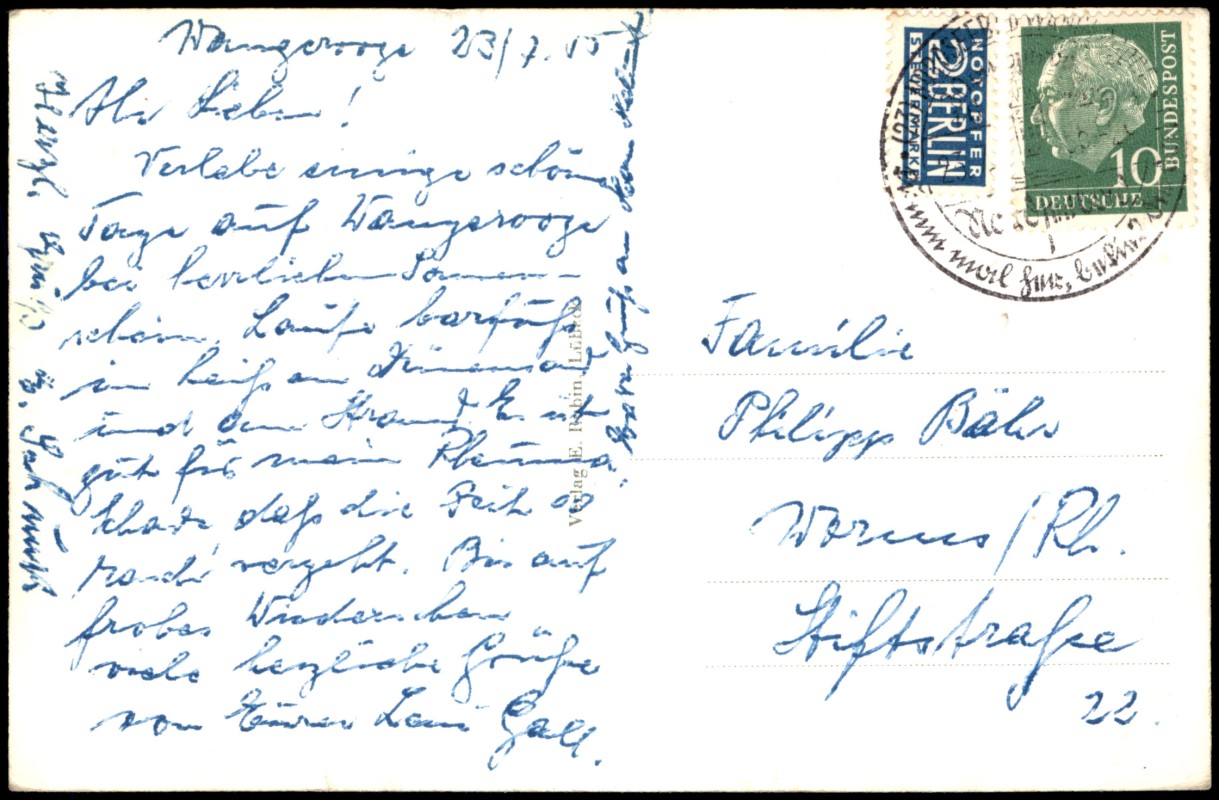 Wangerooge 23/7.55
Ihr Lieben!
Verlebe einige schöne
Tage auf Wangerooge
bei herrlichem Sonnen-
schein. Laufe barfuß
im heißen Dünensand
und am Strand. Es ist
gut für mein Rheuma.
Schade, daß die Zeit so
rasch vergeht. Bis auf
frohes Wiedersehen
viele herzliche Grüße
von Eurer Leni Gall.
Herzl. Grüße
Verlag E. Robin, Lübeck
NOTOPFER
2 BERLIN
STEUERMARKE
10
DEUTSCHE
BUNDESPOST
Familie
Philipp Bähr
Worms/Rh.
Stiftstraße
22.